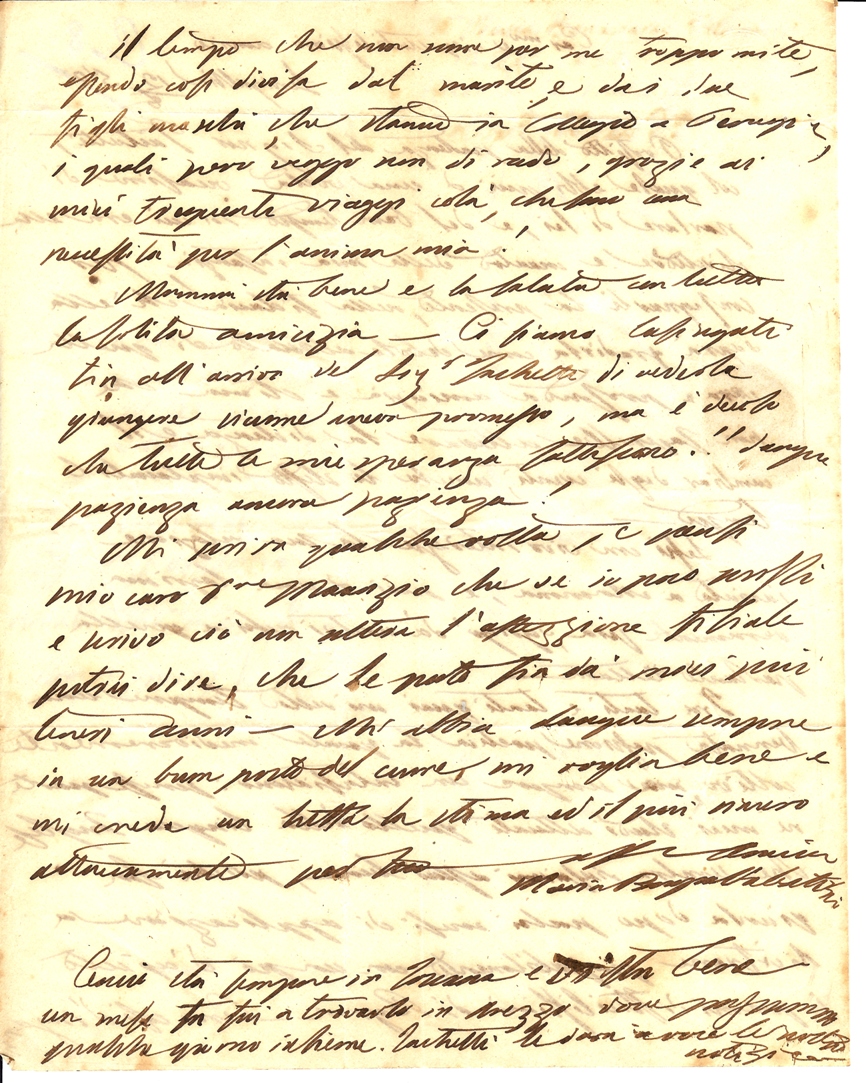 il tempo che non corre per me troppo mite,
essendo così divisa dal marito, e dai due
figli maschi, che stanno in Collegio a Perugia,
i quali però veggo non di rado, grazie ai
miei frequenti viaggi colà, che sono una
necessità per l'anima mia!
Mamma stà bene e la saluta con tutta
la solita amicizia — Ci siamo lusingati
fin all'arrivo del Sig.r Sachetti di vederla
giungere siccome aveva promesso, ma è deciso
che tutte le mie speranze falliscano!! dunque
pazienza ancora pazienza!
Mi scriva qualche volta, e pensi
mio caro Maurizio che se io poco scrissi
e scrivo ciò non altera l'affezzione filiale
potrei dire, che le porto fin da' miei più
teneri anni — Mi abbia dunque sempre
in un buon posto del cuore, mi voglia bene e
mi creda con tutta la stima ed il più sincero
attaccamento per
Amica
Maria
stà sempre in e stà bene
un mese fa fui a trovarlo in Arezzo dove passammo
qualche giorno insieme. Sachetti le darà a voce le nostre
notizie